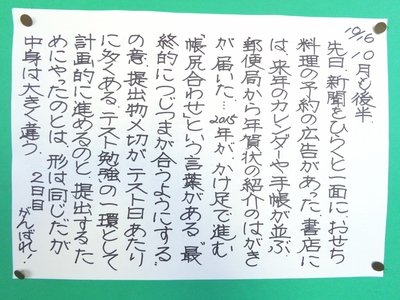 19/16 10月も後半.
先日、新聞をひらくと一面に、おせち
料理の予約の広告があった。書店に
は、来年のカレンダーや手帳が並ぶ.
郵便局から年賀状の紹介のはがき
が届いた…2015年が、かけ足で進む
「帳尻合わせ」という言葉がある.〝最
終的につじつまが合うようにする〟
の意。提出物〆切がテスト日あたり
に多くある。テスト勉強の一環として
計画的に進めるのと、提出するた
めにやったのとは、形は同じだが
中身は大きく違う. 2日目
がんばれ!